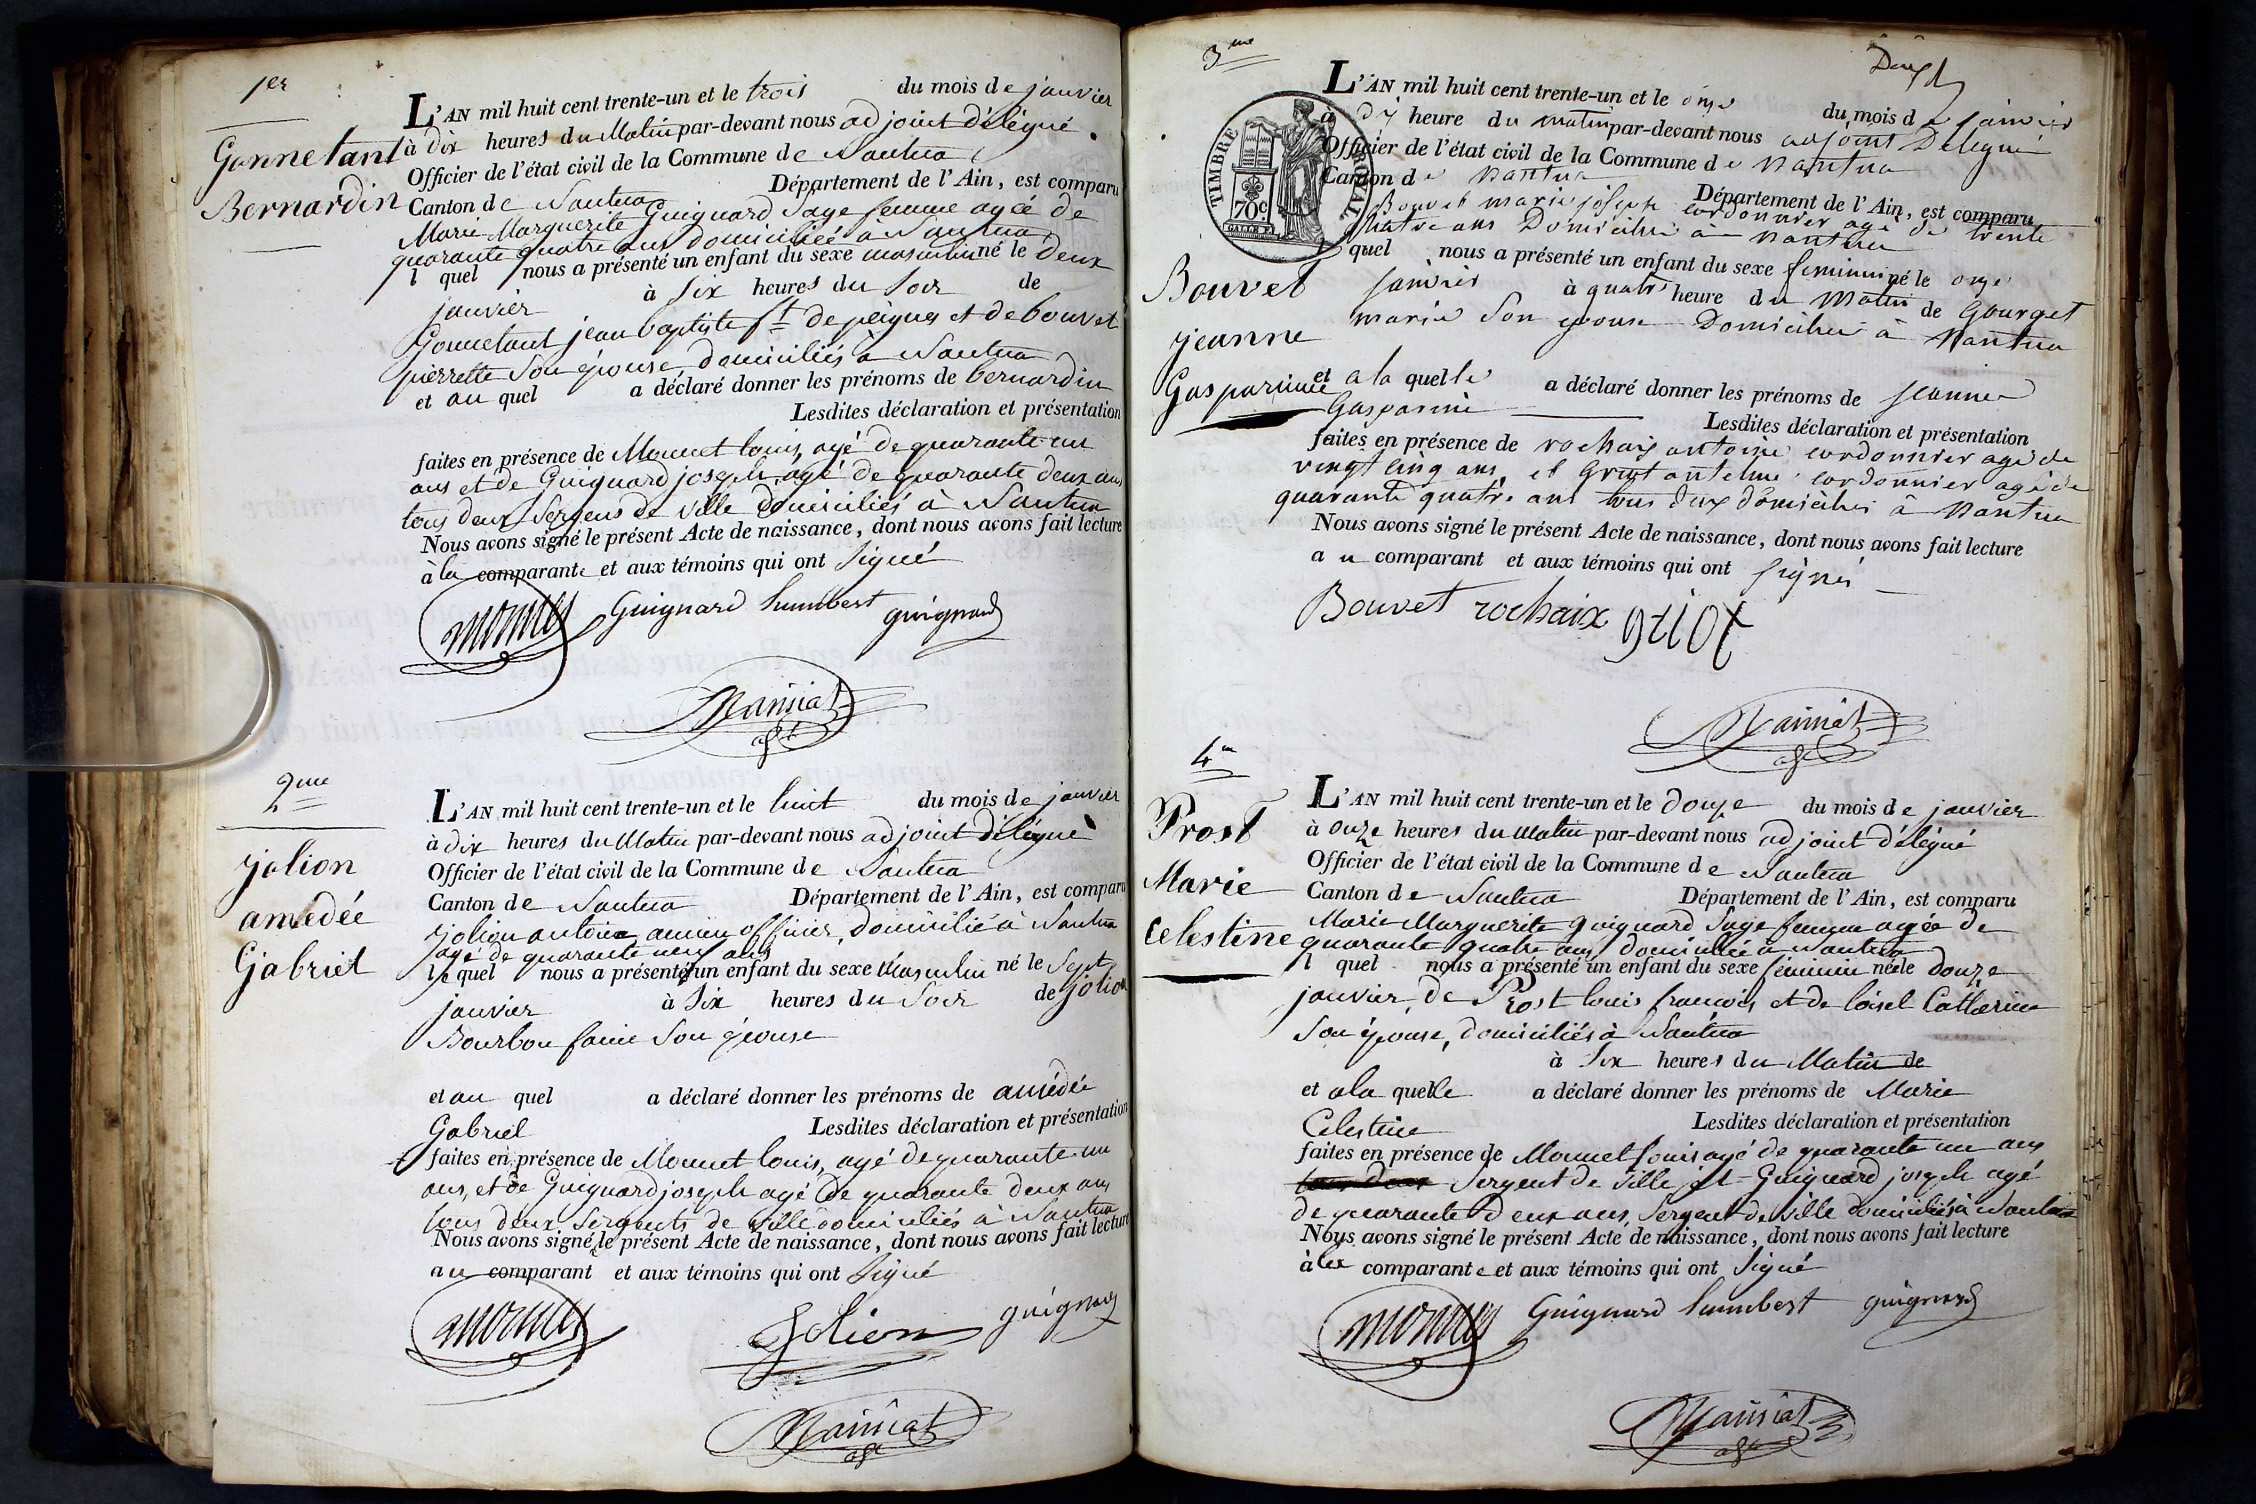 1er
Gonnetant
Bernardin
L'AN mil huit cent trente-un et le trois du mois de janvier
à dix heures du Matin par-devant nous adjoint délégué
Officier de l'état civil de la Commune de Nantua
Canton de Nantua Département de l'Ain, est comparu
Marie Marguerite Guignard Sage femme agée de
quarante quatre ans domiciliée à Nantua
l quel nous a présenté un enfant du sexe masculin né le deux
janvier à Six heures du Soir de
Gonnetant jean baptiste ft de peignes et de bouvet
pierrette Son épouse domiciliés à Nantua
et au quel a déclaré donner les prénoms de bernardin
Lesdites déclaration et présentation
faites en présence de Monnet louis, agé de quarante un
ans et de Guignard joseph agé de quarante deux ans
tous deux Sergens de ville domiciliés à Nantua
Nous avons signé le présent Acte de naissance, dont nous avons fait lecture
à la comparante et aux témoins qui ont Signé
monnet Guignard humbert guignard
Mainiat
adjt
2me
Jolion
amédée
Gabriel
L'AN mil huit cent trente-un et le huit du mois de janvier
à dix heures du Matin par-devant nous adjoint délégué
Officier de l'état civil de la Commune de Nantua
Canton de Nantua Département de l'Ain, est comparu
jolion antoine ancien officier, domicilié à Nantua
agé de quarante neuf ans
le quel nous a présenté un enfant du sexe Masculin né le Sept
janvier à Six heures du Soir de jolion
Bourbon fanie Son épouse
et au quel a déclaré donner les prénoms de amédée
Gabriel Lesdites déclaration et présentation
faites en présence de Monnet louis, agé de quarante un
ans, et de Guignard joseph agé de quarante deux ans
tous deux Sergents de ville domiciliés à Nantua
Nous avons signé le présent Acte de naissance, dont nous avons fait lecture
au comparant et aux témoins qui ont Signé
monnet Jolion guignard
Mainiat
adjt
3me
TIMBRE ROYAL
70c
Bouvet
jeanne
Gasparinne
L'AN mil huit cent trente-un et le onze du mois de janvier
à dix heure du matin par-devant nous adjoint Délégué
Officier de l'état civil de la Commune de Nantua
Canton de Nantua Département de l'Ain, est comparu
Bouvet marie joseph cordonnier agé de trente
quatre ans Domicilié à Nantua
l quel nous a présenté un enfant du sexe feminin né le onze
janvier à quatre heure du Matin de Gourget
marie Son epouse Domiciliée à Nantua
et a la quelle a déclaré donner les prénoms de jeanne
Gasparine Lesdites déclaration et présentation
faites en présence de rochaix antoine cordonnier agé de
vingt cinq ans et Griot antelme cordonnier agé de
quarante quatre ans tous deux domiciliés à Nantua
Nous avons signé le présent Acte de naissance, dont nous avons fait lecture
au comparant et aux témoins qui ont signés
Bouvet rochaix griot
Mainiat
adjt
4me
Prost
Marie
Celestine
L'AN mil huit cent trente-un et le douze du mois de janvier
à onze heures du Matin par-devant nous adjoint délégué
Officier de l'état civil de la Commune de Nantua
Canton de Nantua Département de l'Ain, est comparu
Marie Marguerite Guignard Sage femme agée de
quarante quatre ans domiciliée à Nantua
l quel nous a présenté un enfant du sexe féminin née le douze
janvier, de Prost louis françois et de loisel Catherine
Son épouse, domiciliés à Nantua
à Six heures du Matin de
et à la quelle a déclaré donner les prénoms de Marie
Celestine Lesdites déclaration et présentation
faites en présence de Monnet louis agé de quarante un ans
tous deux Sergent de ville, et Guignard joseph agé
de quarante deux ans, Sergent de ville domiciliés à Nantua
Nous avons signé le présent Acte de naissance, dont nous avons fait lecture
à la comparante et aux témoins qui ont Signé
monnet Guignard humbert guignard
Mainiat
adjt